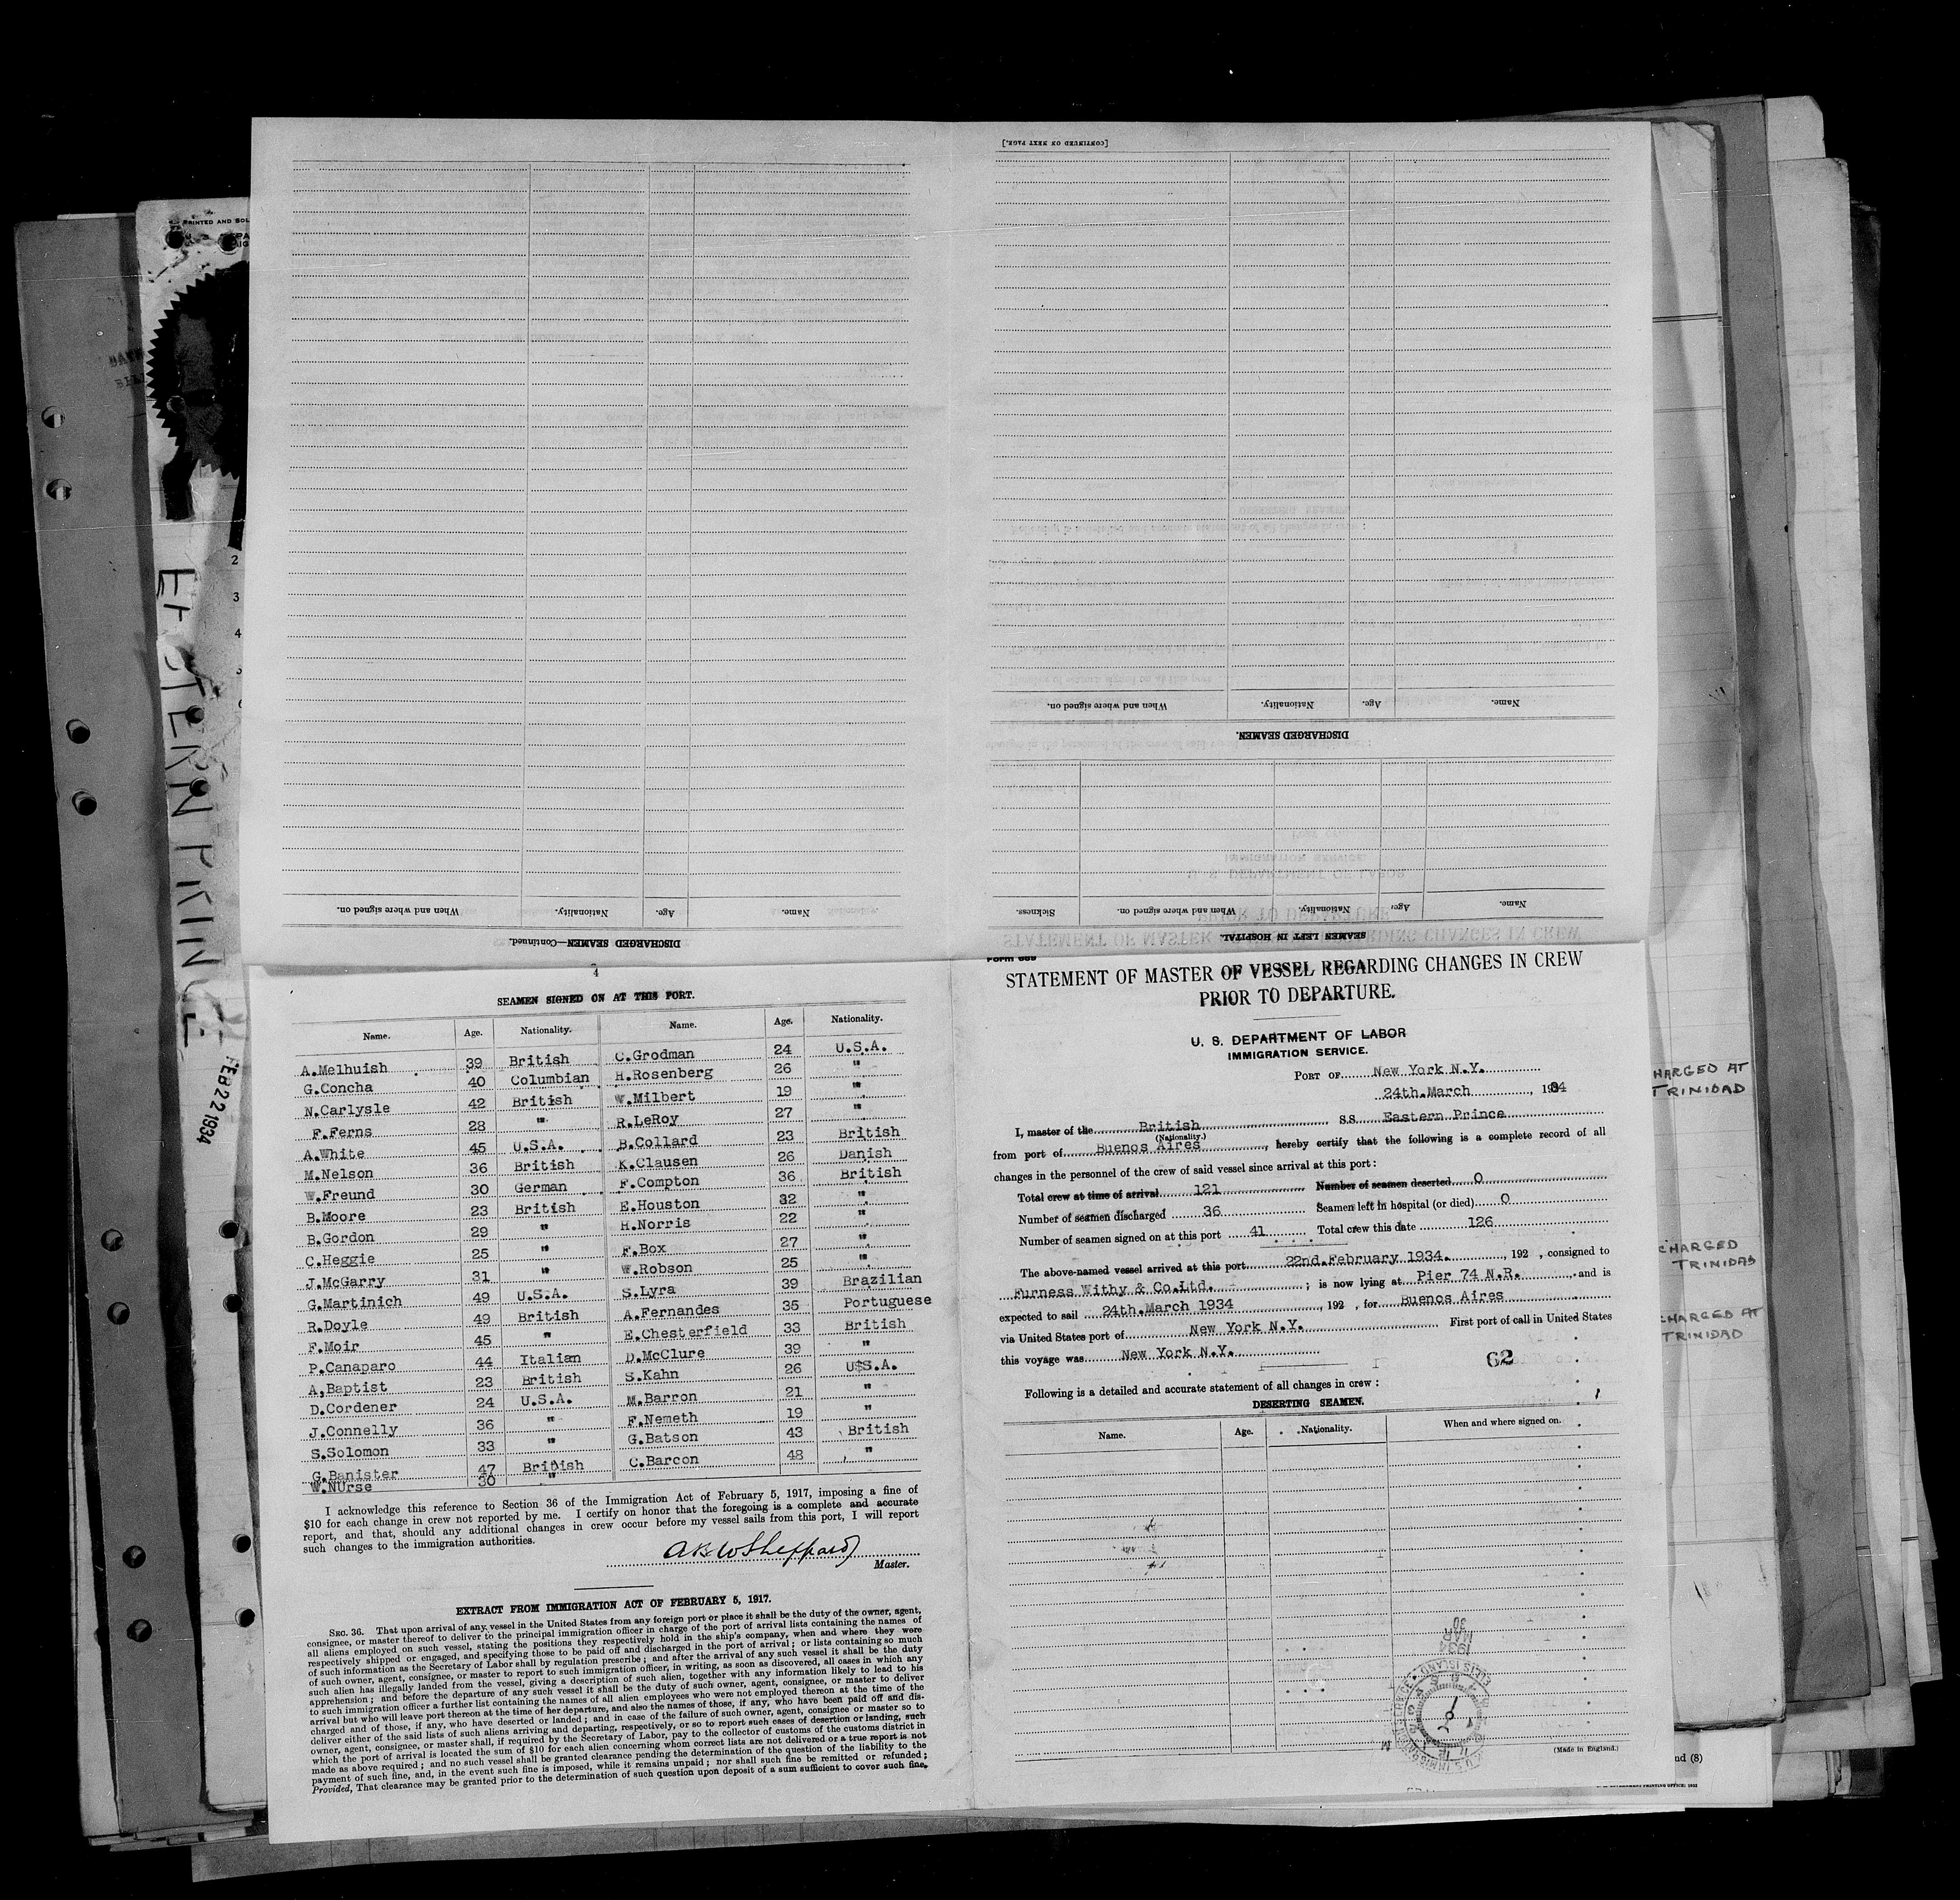 [CONTINUED ON NEXT PAGE.]
When and where signed on. Nationality. Age. Name.
DISCHARGED SEAMEN.
Sickness. When and where signed on. Nationality. Age. Name.
SEAMEN LEFT IN HOSPITAL.
When and where signed on. Nationality. Age. Name.
DISCHARGED SEAMEN—Continued.
PRINTED AND SOL
EASTERN PRINCE
FEB 22 1934
2
3
4
4
SEAMEN SIGNED ON AT THIS PORT.
Name. Age. Nationality. Name. Age. Nationality.
A.Melhuish 39 British C.Grodman 24 U.S.A.
G.Concha 40 Columbian H.Rosenberg 26 "
N.Carlysle 42 British W.Milbert 19 "
F.Ferns 28 " R.LeRoy 27 "
A.White 45 U.S.A. B.Collard 23 British
M.Nelson 36 British K.Clausen 26 Danish
W.Freund 30 German F.Compton 36 British
B.Moore 23 British E.Houston 32 "
B.Gordon 29 " H.Norris 22 "
C.Heggie 25 " F.Box 27 "
J.McGarry 31 " W.Robson 25 "
G.Martinich 49 U.S.A. S.Lyra 39 Brazilian
R.Doyle 49 British A.Fernandes 35 Portuguese
F.Moir 45 " E.Chesterfield 33 British
P.Canaparo 44 Italian D.McClure 39 "
A,Baptist 23 British S.Kahn 26 U$S.A.
D.Cordener 24 U.S.A. M.Barron 21 "
J.Connelly 36 " F.Nemeth 19 "
S.Solomon 33 " G.Batson 43 British
G.Banister 47 British C.Barcon 48 "
W.NUrse 30 "
I acknowledge this reference to Section 36 of the Immigration Act of February 5, 1917, imposing a fine of
$10 for each change in crew not reported by me. I certify on honor that the foregoing is a complete and accurate
report, and that, should any additional changes in crew occur before my vessel sails from this port, I will report
such changes to the immigration authorities.
A B W Sheppard
Master.
EXTRACT FROM IMMIGRATION ACT OF FEBRUARY 5, 1917.
SEC. 36. That upon arrival of any vessel in the United States from any foreign port or place it shall be the duty of the owner, agent,
consignee, or master thereof to deliver to the principal immigration officer in charge of the port of arrival lists containing the names of
all aliens employed on such vessel, stating the positions they respectively hold in the ship's company, when and where they were
respectively shipped or engaged, and specifying those to be paid off and discharged in the port of arrival; or lists containing so much
of such information as the Secretary of Labor shall by regulation prescribe; and after the arrival of any such vessel it shall be the duty
of such owner, agent, consignee, or master to report to such immigration officer, in writing, as soon as discovered, all cases in which any
such alien has illegally landed from the vessel, giving a description of such alien, together with any information likely to lead to his
apprehension; and before the departure of any such vessel it shall be the duty of such owner, agent, consignee, or master to deliver
to such immigration officer a further list containing the names of all alien employees who were not employed thereon at the time of the
arrival but who will leave port thereon at the time of her departure, and also the names of those, if any, who have been paid off and dis-
charged and of those, if any, who have deserted or landed; and in case of the failure of such owner, agent, consignee or master so to
deliver either of the said lists of such aliens arriving and departing, respectively, or so to report such cases of desertion or landing, such
owner, agent, consignee, or master shall, if required by the Secretary of Labor, pay to the collector of customs of the customs district in
which the port of arrival is located the sum of $10 for each alien concerning whom correct lists are not delivered or a true report is not
made as above required; and no such vessel shall be granted clearance pending the determination of the question of the liability to the
payment of such fine, and, in the event such fine is imposed, while it remains unpaid; nor shall such fine be remitted or refunded;
Provided, That clearance may be granted prior to the determination of such question upon deposit of a sum sufficient to cover such fine.
Form 689
STATEMENT OF MASTER OF VESSEL REGARDING CHANGES IN CREW
PRIOR TO DEPARTURE.
U. S. DEPARTMENT OF LABOR
IMMIGRATION SERVICE.
PORT OF New York N.Y.
24th.March, 1934
I, master of the British S.S. Eastern Prince
(Nationality.)
from port of Buenos Aires, hereby certify that the following is a complete record of all
changes in the personnel of the crew of said vessel since arrival at this port:
Total crew at time of arrival 121 Number of seamen deserted 0
Number of seamen discharged 36 Seamen left in hospital (or died) 0
Number of seamen signed on at this port 41 Total crew this date 126
The above-named vessel arrived at this port 22nd.February 1934., 192 , consigned to
Furness Withy & Co.Ltd. ; is now lying at Pier 74 N.R., and is
expected to sail 24th.March 1934, 192 , for Buenos Aires
via United States port of New York N.Y. First port of call in United States
this voyage was New York N.Y.
62
Following is a detailed and accurate statement of all changes in crew:
DESERTING SEAMEN.
Name. Age. Nationality. When and where signed on.
1934
MAR
30
ELLIS ISLAND
(Made in England.)
HARGED AT
TRINIDAD
CHARGED
TRINIDAD
CHARGED AT
TRINIDAD
nd (8)
GOVERNMENT PRINTING OFFICE: 1932